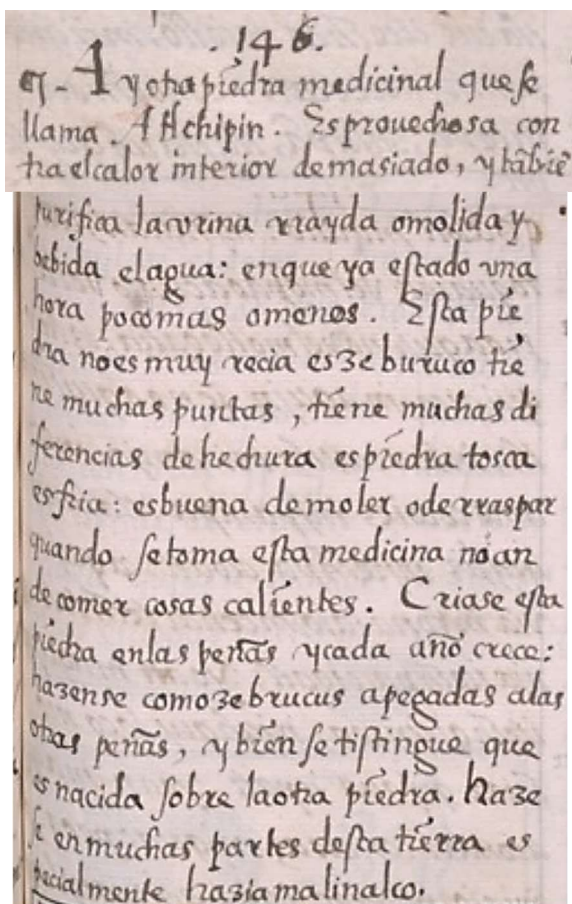 . 146.
¶ - Ay otra piedra medicinal que se
llama. Atlchipin. Es prouechosa con
tra el calor interior demasiado, y tãbiẽ
purifica la vrina rrayda o molida y
bebida el agua: en que ya estado vna
hora poco mas o menos. Esta pie
dra no es muy recia es zeburuco tie
ne muchas puntas, tiene muchas di
ferencias de hechura es piedra tosca
es fria: es buena de moler o de rraspar
quando se toma esta medicina no an
de comer cosas calientes. Criase esta
piedra en las peñas y cada año crece:
hazense como zebrucus apegadas a las
otras peñas, y bien se tistingue que
es nacida sobre la otra piedra. haze
se en muchas partes desta tierra es
pecialmente hazia malinalco.